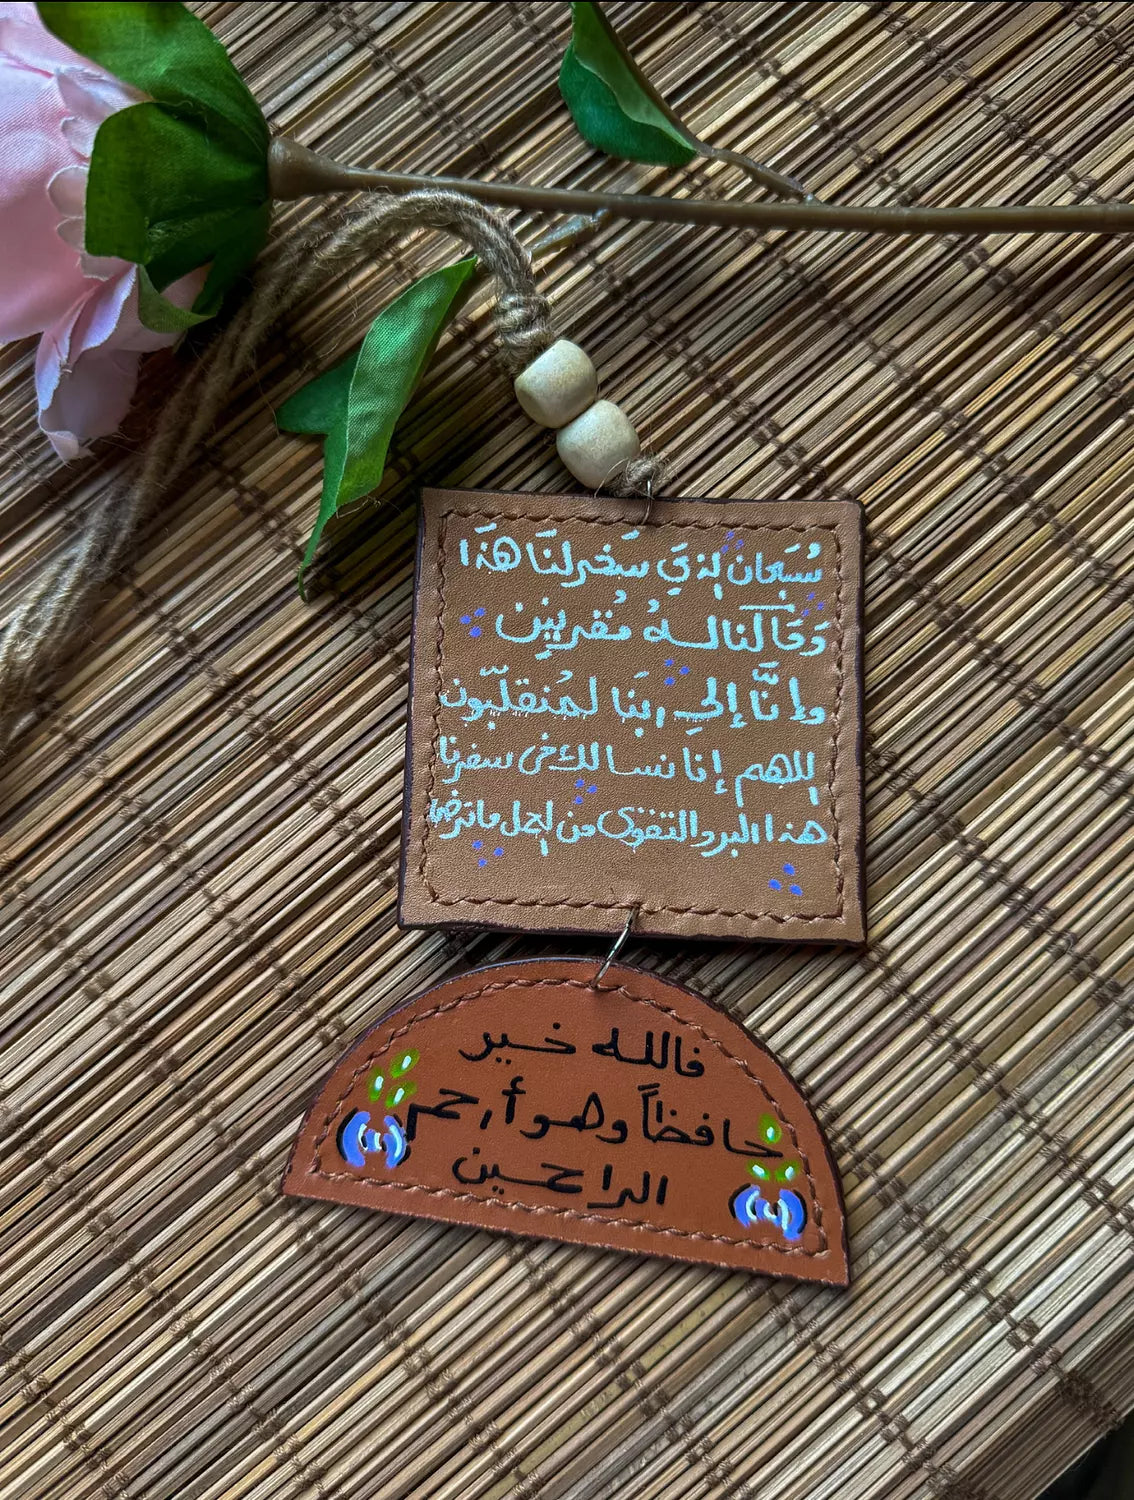 سُبَحان الذي سَخر لنَا هَذَا
وَمَا كَنا لهُ مُقربنِين
وإنَّا إلىِ ربَنا لمُنقلّبون
اللهم إنا نسالك في سفرنا
هذا البر والتقوى من العمل ما ترضى
فالله خير
حافظاً وهو أرحم
الراحمين